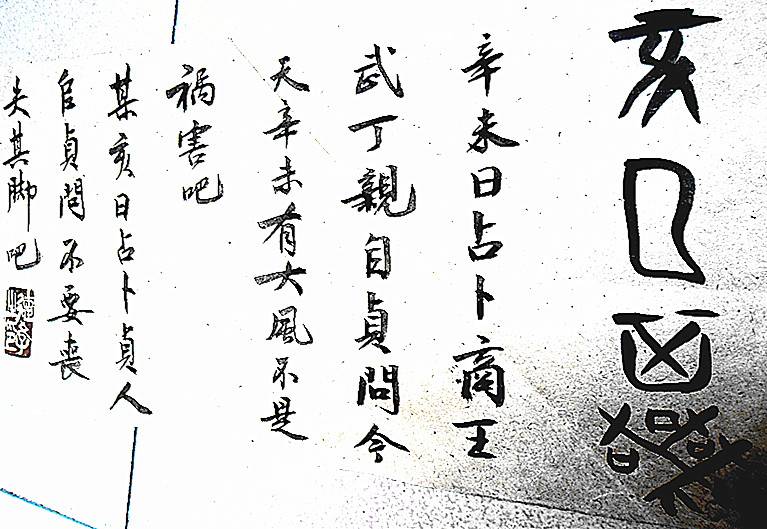 亥
辛未日占卜商王
武丁親自貞問今
天辛未有大風不是
禍害吧
某亥日占卜貞人
㠯貞問不要喪
失其脚吧